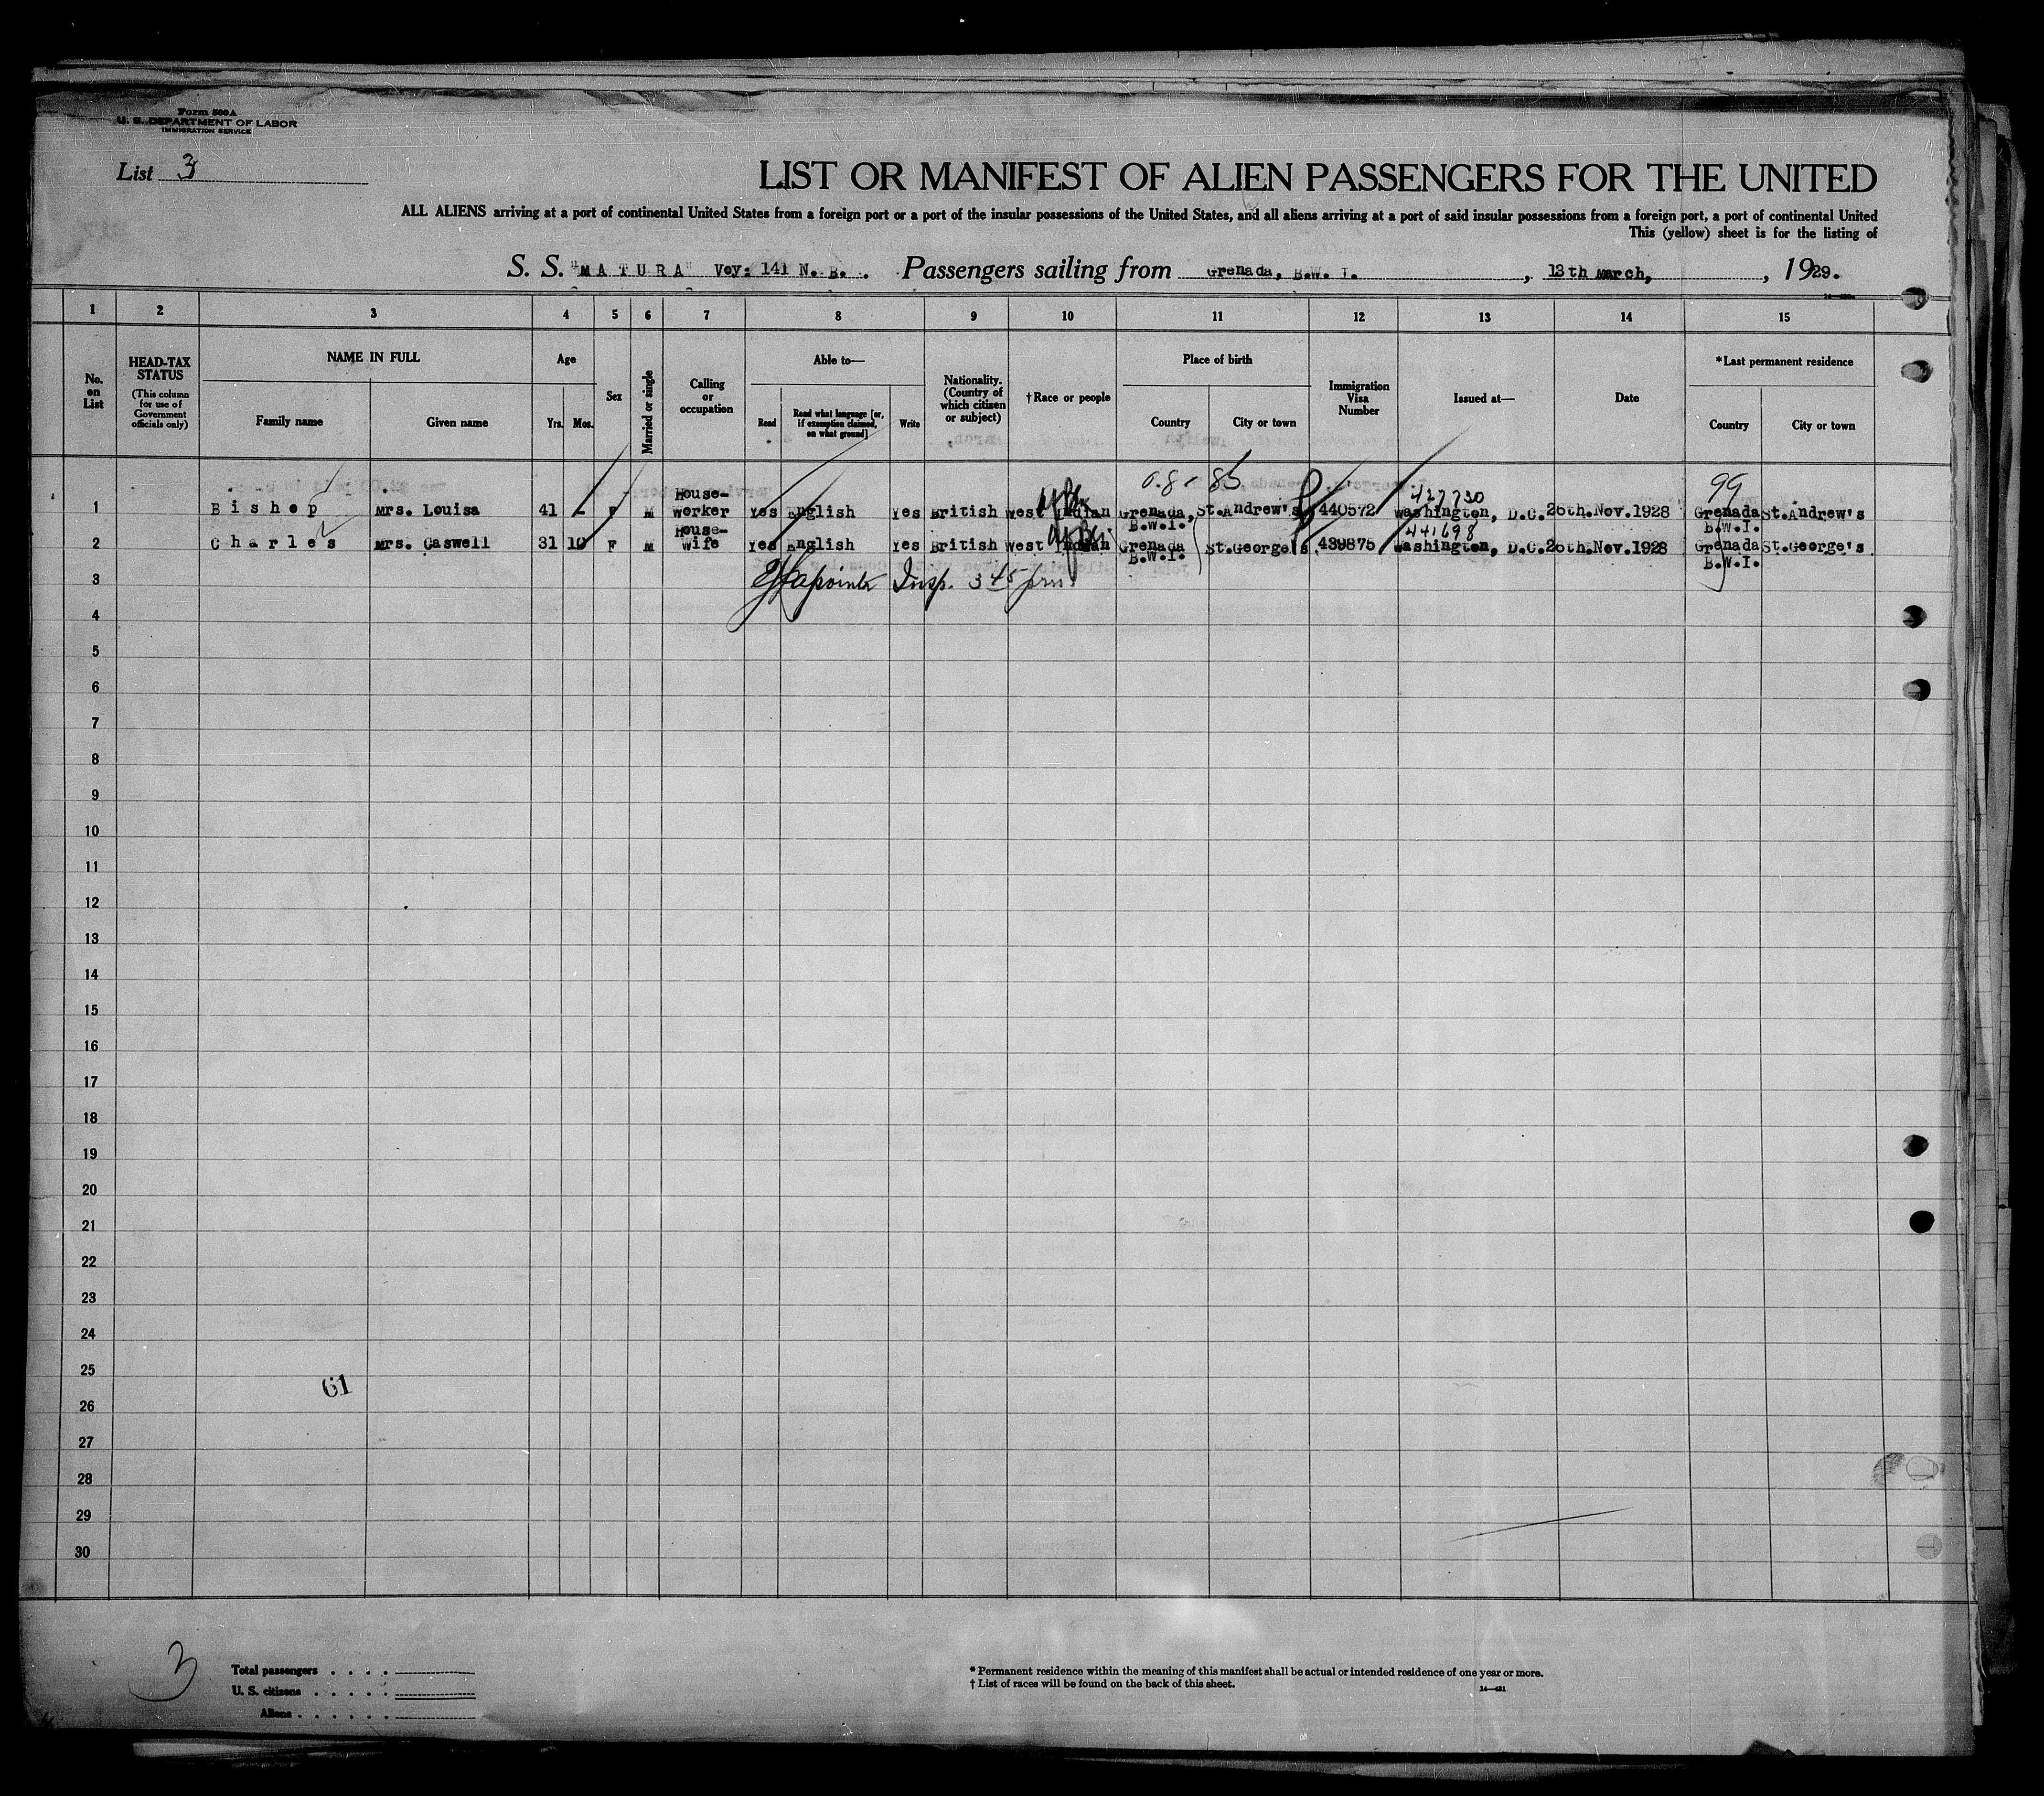 Form 500A
U. S. DEPARTMENT OF LABOR
IMMIGRATION SERVICE
List 3
LIST OR MANIFEST OF ALIEN PASSENGERS FOR THE UNITED
ALL ALIENS arriving at a port of continental United States from a foreign port or a port of the insular possessions of the United States, and all aliens arriving at a port of said insular possessions from a foreign port, a port of continental United
This (yellow) sheet is for the listing of
S. S. "MATURA" Voy: 141 N. B. Passengers sailing from Grenada, B.W. I. , 13th March, , 1929.
1 2 3 4 5 6 7 8 9 10 11 12 13 14 15
No. on List
HEAD-TAX STATUS (This column for use of Government officials only)
NAME IN FULL
Family name Given name
Age
Yrs. Mos.
Sex
Married or single
Calling or occupation
Able to—
Read Read what language [or, if exemption claimed, on what ground] Write
Nationality. (Country of which citizen or subject)
†Race or people
Place of birth
Country City or town
Immigration Visa Number
Issued at—
Date
*Last permanent residence
Country City or town
0.8 - 85 99
427730
1 Bishop Mrs. Louisa 41 - F M House-worker Yes English Yes British West Indian Grenada, B.W.I. St.Andrew's 440572 Washington, D.C. 26th.Nov.1928 Grenada B.W.I. St.Andrew's
441698
2 Charles Mrs. Caswell 31 10 F M House-wife Yes English Yes British West Indian Grenada B.W.I. St.George's 439875 Washington, D.C. 26th.Nov.1928 Grenada B.W.I. St.George's
3 Insp. 3 45 pm
4
5
6
7
8
9
10
11
12
13
14
15
16
17
18
19
20
21
22
23
24
25
61
26
27
28
29
30
3
Total passengers . . . .
U. S. citizens . . . . .
Aliens . . . . . .
* Permanent residence within the meaning of this manifest shall be actual or intended residence of one year or more.
† List of races will be found on the back of this sheet.
14—431